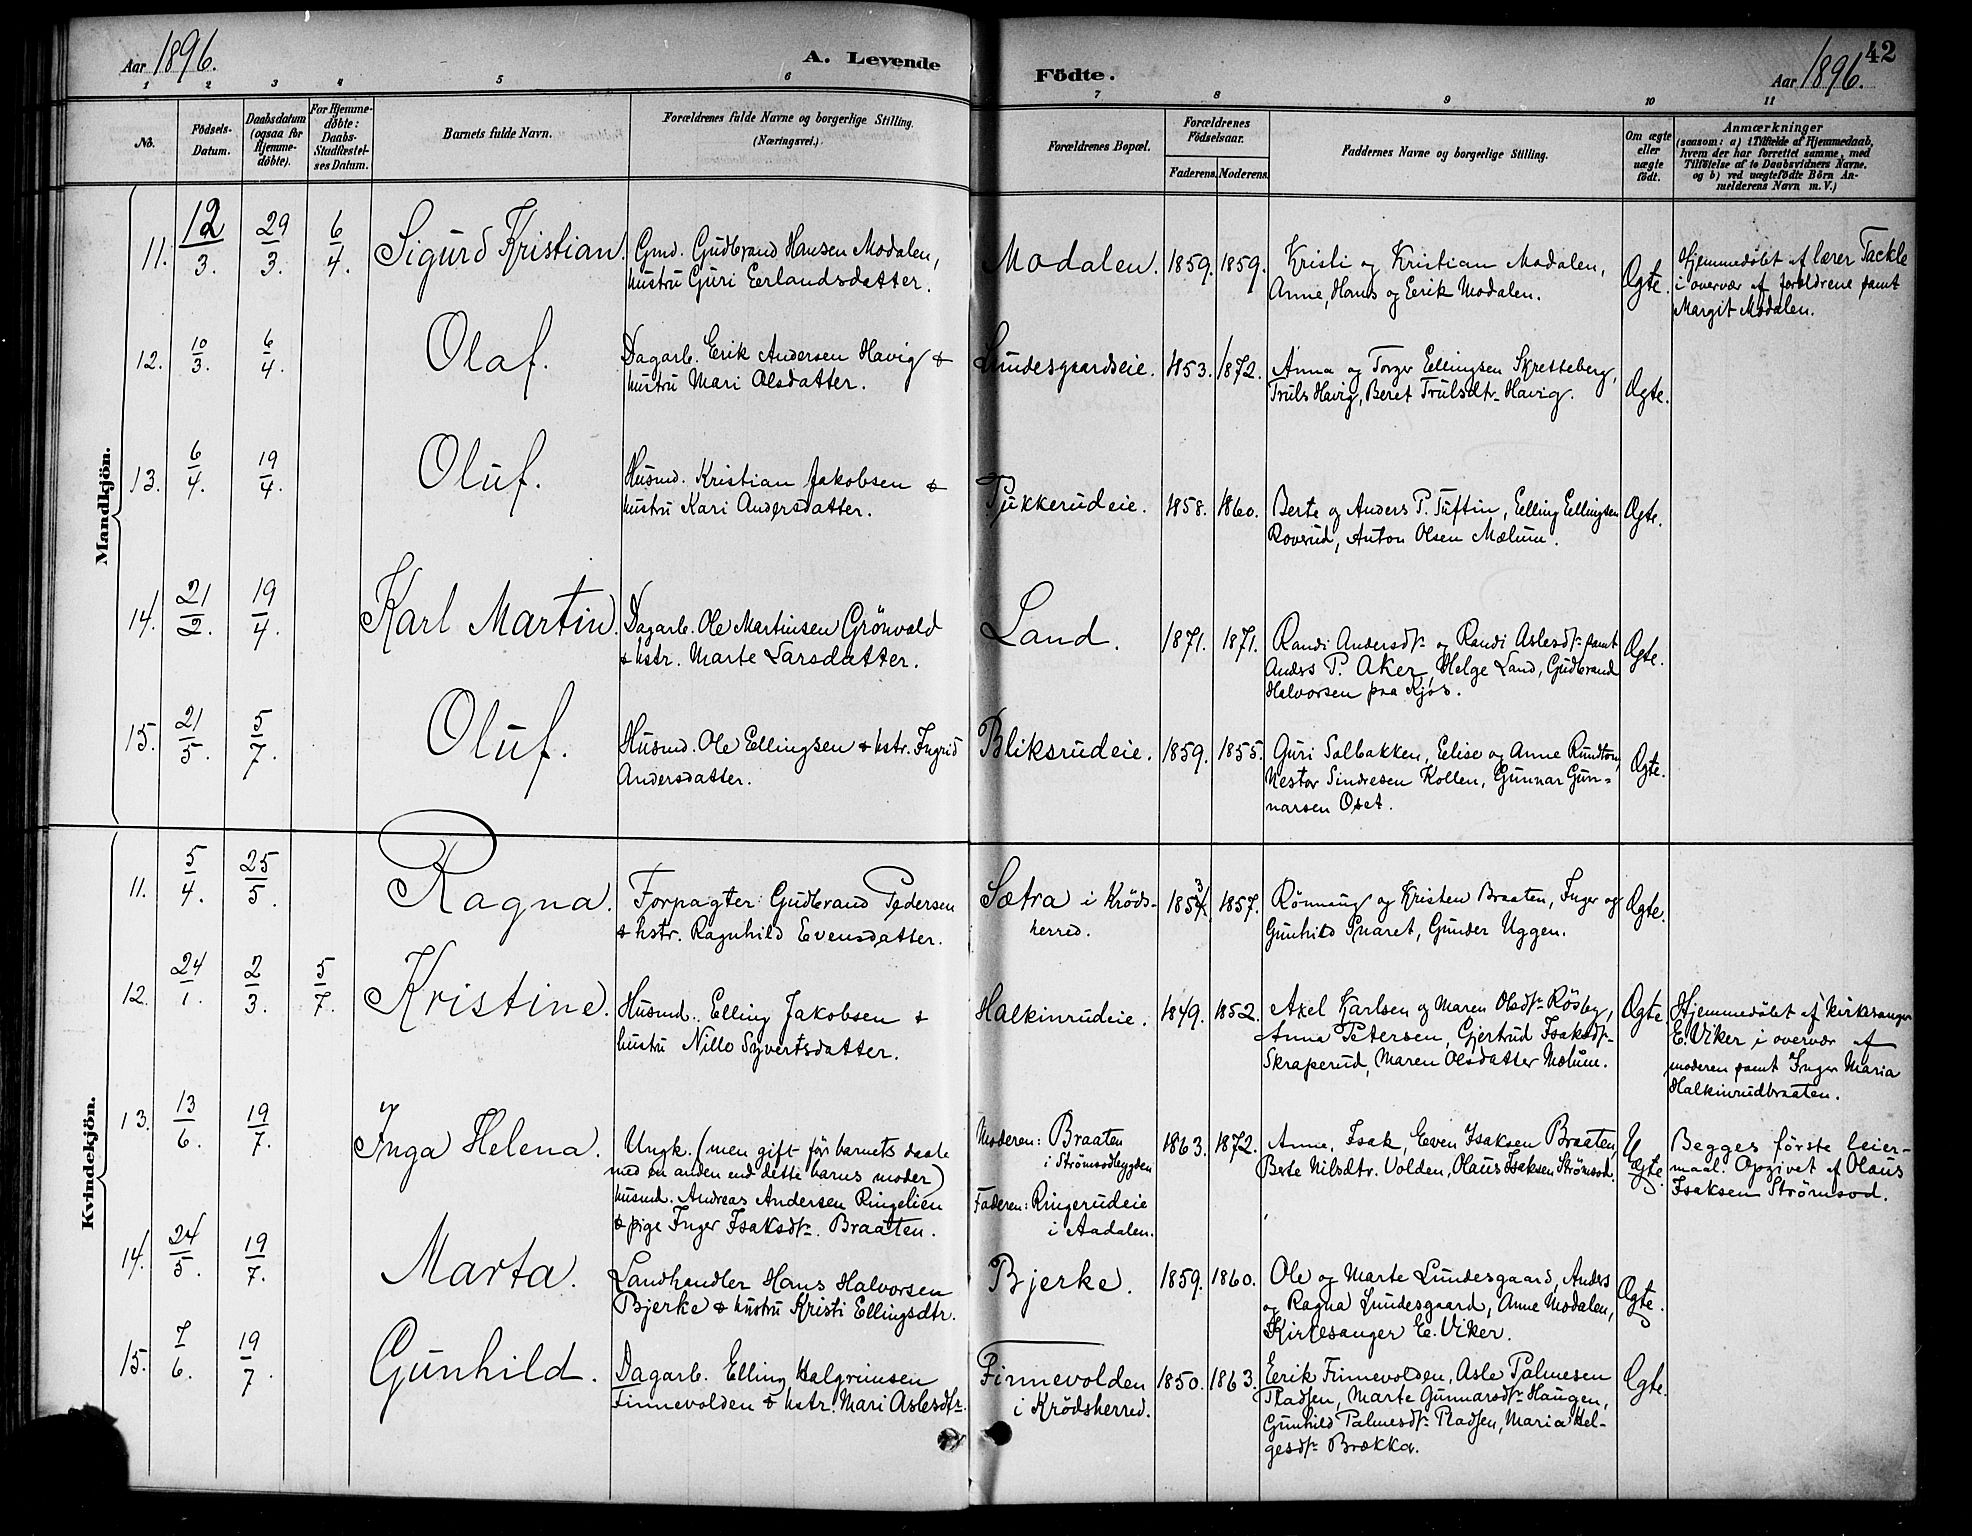 Aar 1896.
A. Levende
Födte.
Aar 1896.
42
1 2 3 4 5 6 7 8 9 10 11
No.
Fødsels-
Datum.
Daabsdatum
(ogsaa for
Hjemme-
døbte).
For Hjemme-
døbte:
Daabs-
Stadfæstel-
ses Datum.
Barnets fulde Navn.
Forældrenes fulde Navne og borgerlige Stilling.
(Næringsvei.)
Forældrenes Bopæl.
Forældrenes
Fødselsaar.
Faderens. Moderens.
Faddernes Navne og borgerlige Stilling.
Om ægte
eller
uægte
født.
Anmærkninger
(saasom: a) i Tilfælde af Hjemmedaab,
hvem der har forrettet samme, med
Tilføielse af to Daabsvidners Navne.
og b) ved uægtefødte Børn An-
melderens Navn m. V.)
Mandkjön.
11. 12/3. 29/3. 6/4. Sigurd Kristian.
Gmd. Gudbrand Hansen Modalen,
hustru Guri Eerlandsdatter.
Modalen. 1859. 1859.
Kristi og Kristian Modalen,
Anne, Hans og Eerik Modalen.
Ægte.
Hjemmedøbt af lærer Tackle
i overvær af forældrene samt
Margit Modalen.
12. 10/3. 6/4. Olaf.
Dagarb. Erik Andersen Havig &
hustru Mari Olsdatter.
Lundesgaardseie. 1853. 1872.
Anna og Torger Eellingsen Skretteberg,
Truls Havig, Beret Trulsdtr. Havig.
Ægte.
13. 6/4. 19/4. Oluf.
Husmd. Kristian Jakobsen &
hustru Kari Andersdatter.
Tjukkerudeie. 1858. 1860.
Berte og Anders P. Tuftin, Eelling Eellingsen
Roverud, Anton Olsen Mælum.
Ægte.
14. 21/2. 19/4. Karl Martin.
Dagarb. Ole Martinsen Grönvold
& hstr. Marte Larsdatter.
Land. 1871. 1871.
Randi Andersdtr. og Randi Aslesdtr. samt
Anders P. Aker, Helge Land, Gudbrand
Halvorsen paa Kjös.
Ægte.
15. 21/5. 5/7. Oluf.
Husmd. Ole Ellingsen & hstr. Ingrid
Andersdatter.
Bliksrudeie. 1859. 1855.
Guri Solbakken, Eelise og Anne Rundtom,
Nestor Sindresen Kollen, Gunnar Gun-
narsen Oset.
Ægte.
Kvindekjön.
11. 5/4. 25/5. Ragna.
Forpagter Gudbrand Pedersen
& hstr. Ragnhild Evensdatter.
Sætra i Kröds-
herred.
1853. 1857.
Rönnaug og Kristen Braaten, Inger og
Gunhild Snaret, Gunder Uggen.
Ægte.
12. 24/1. 2/3. 5/7. Kristine.
Husmd. Elling Jakobsen &
hustru Nillo Syvertsdatter.
Halkinrudeie. 1849. 1852.
Axel Karlsen og Maren Olsdtr. Rösby,
Anna Petersen, Gjertrud Isaksdtr.
Skraperud, Maren Olsdatter Mælum.
Ægte
Hjemmedøbt af kirkesanger
E. Viker i overvær af
moderen samt Inger Maria
Halkinrudbraaten.
13. 13/6. 19/7. Inga Helena.
Ungk. (men gift før barnets daab
med en anden end dette barns moder)
husmd. Andreas Andersen Ringelien
& pige Inger Isaksdtr. Braaten.
Moderen: Braaten
i Strömsodbygden
Faderen: Ringerudeie
i Aadalen.
1863. 1872.
Anne, Isak, Even Isaksen Braaten,
Berte Nilsdtr. Volden, Olaus Isaksen Strömsod.
Uægte.
Begges første leier-
maal. Opgivet af Olaus
Isaksen Strömsod.
14. 24/5. 19/7. Marta.
Landhandler Hans Halvorsen
Bjerke & hustru Kristi Ellingsdtr.
Bjerke. 1859. 1860.
Ole og Marte Lundesgaard, Anders
og Ragna Lundesgaard, Anne Modalen,
Kirkesanger E. Viker.
Ægte.
15. 7/6. 19/7. Gunhild.
Dagarb. Elling Halgrimsen
Finnevolden & hstr. Mari Aslesdtr.
Finnevolden
i Krödsherred.
1850. 1863.
Eerik Finnevolden, Asle Palmesen
Pladsen, Marte Gunnarsdtr. Haugen,
Gunhild Palmesdtr. Pladsen, Maria Hel-
gesdtr. Brække.
Ægte.